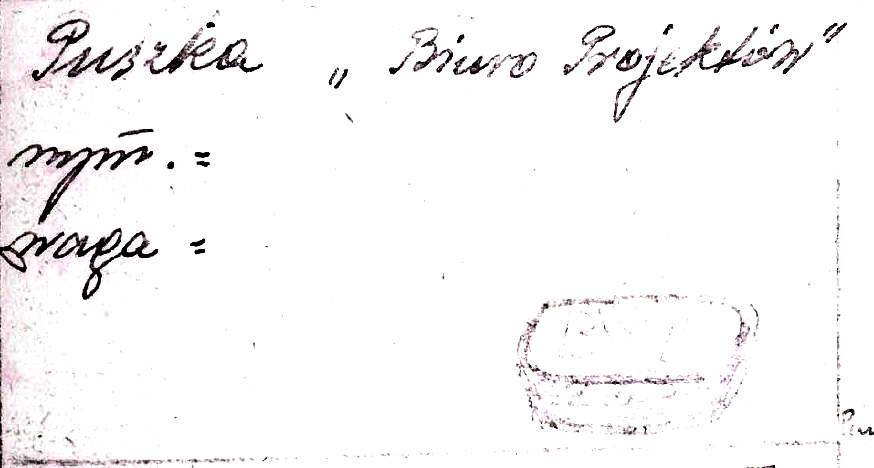 Puszka „Biuro Projektów"
waga =